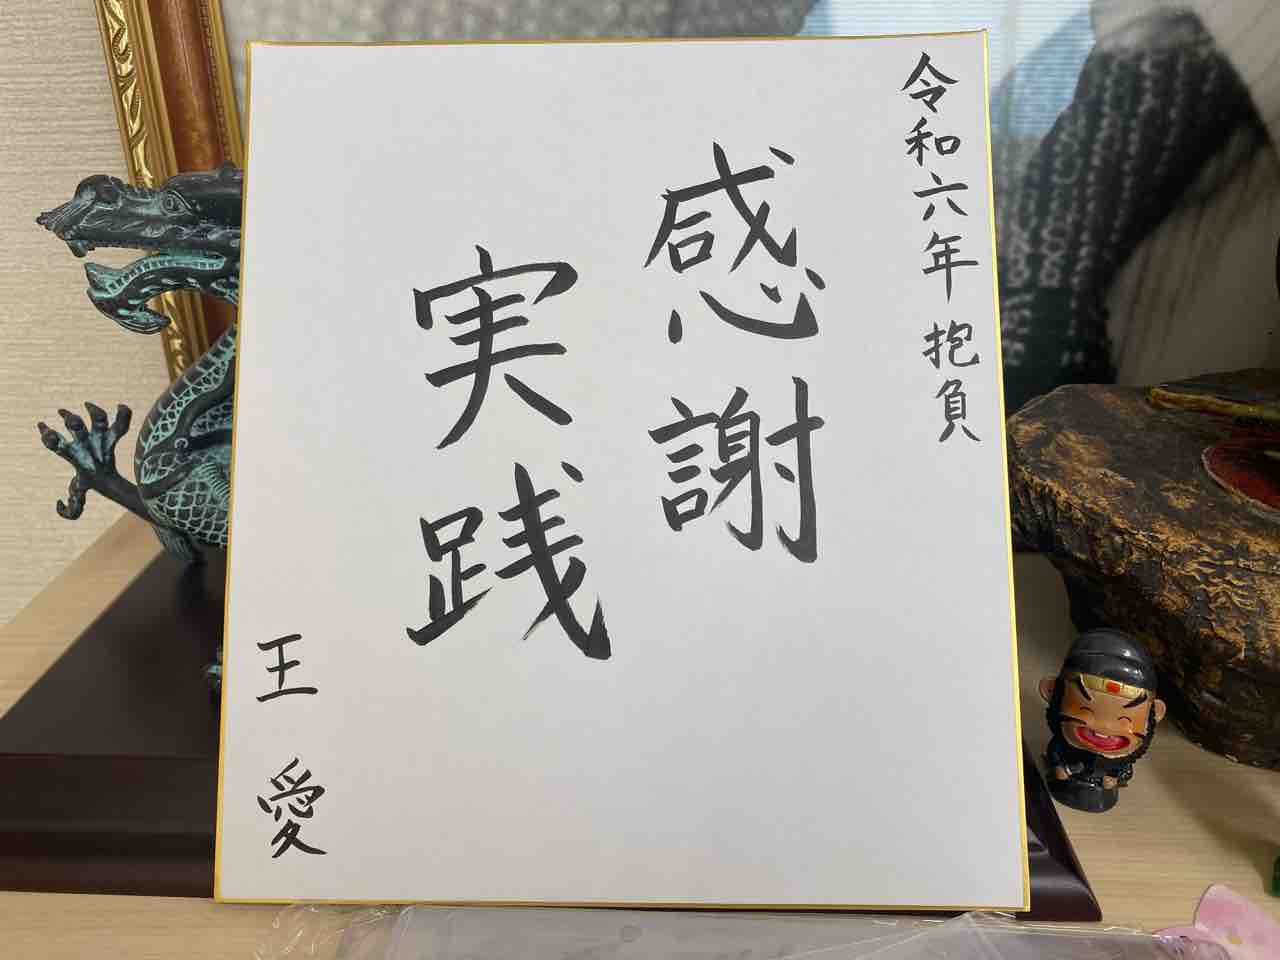 令和六年 抱負
感謝
実践
王 愛